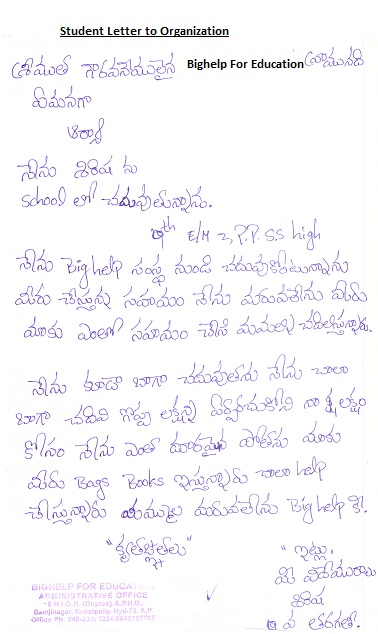 Student Letter to Organization
శ్రీమతి గౌరవనీయులైన Bighelp For Education
నేను శిరీష ను
school లో చదువుతున్నాను.
9th E/M Z.P.P.S.S high
నేను Big help సంస్థ నుండి చదువుకొంటున్నాను
మీరు చేస్తున్న సహాయం నేను మరువలేను మీరు
మాకు ఎంతో సహాయం చేసి మమల్ని చదివిస్తున్నారు.
నేను కూడా బాగా చదువుతాను నేను చాలా
బాగా చదివి గొప్ప లక్ష్యాన్ని ఏర్పరచుకోని నా లక్ష్యం
కోసం నేను ఎంత దూరమైన పోతాను మాకు
మీరు Bags Books ఇస్తున్నారు చాలా help
చేస్తున్నారు మిమ్మల్ని మరువలేను Big help కి!
"కృతజ్ఞతలు"
"ఇట్లు,
మీ విధేయురాలు
శిరీష
9 వ తరగతి.
BIGHELP FOR EDUCATION
ADMINISTRATIVE OFFICE